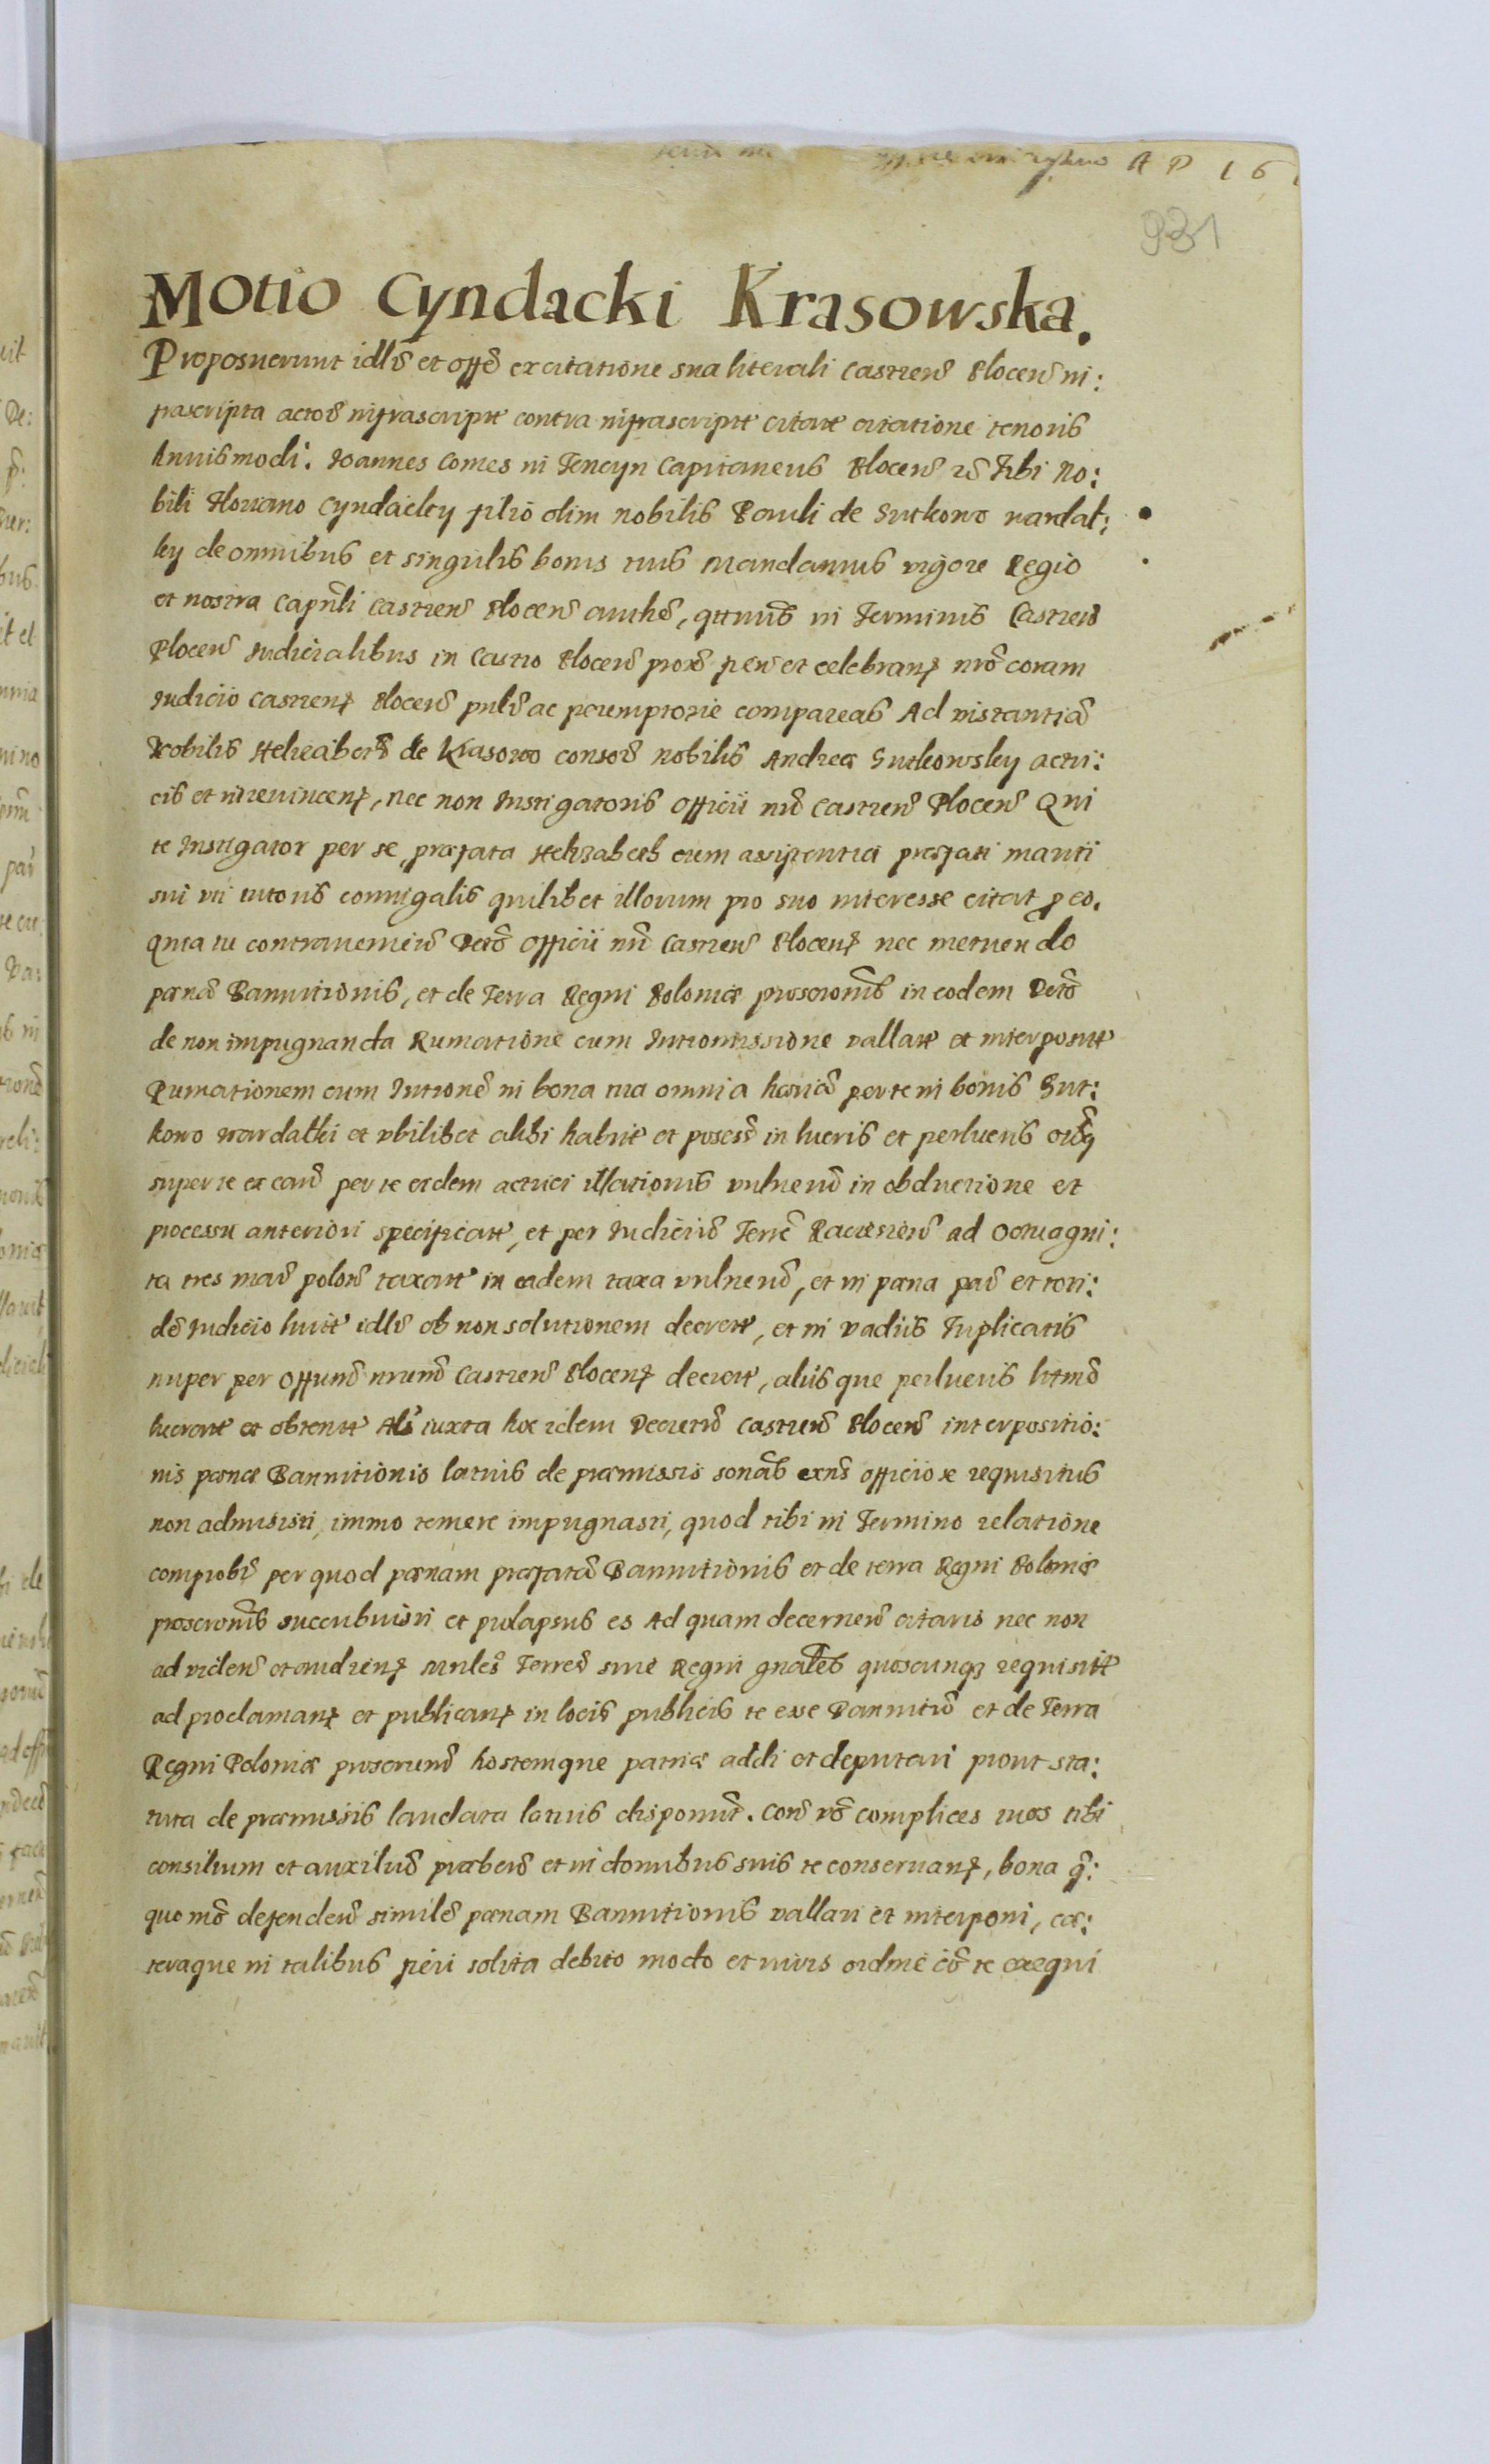 A D 1 6
931
Motio Cyndacki Krasowska.
Proposuerunt idlr̃ et offõ ex citatione sua literali Castreñ Ploceñ in:
frascripta actorẽ infrascripte contra infrascripte citate citatione tenoris
huiusmodi. Joannes Comes in Tencyn Capitaneus Ploceñ rc̃ Tibi No:
bili Floriano Cyndacky filio olim nobilis Pauli de Sutkowo nardat:
ky de omnibus et singulis bonis tuis Mandamus vigore Regio
et nostra Capnĩli Castreñ Ploceñ authẽ, qtnus̃ in Terminis Castreñ
Ploceñ Judicialibus in Castro Ploceñ proxẽ fieñ et celebranꝫ nrõ coram
Judicio Castrenꝫ Ploceñ pnlr̃ ac peremptorie compareas Ad instantiã
Nobilis Helizabethẽ de Krasowo consorẽ nobilis Andreæ Sutkowsky actri:
cis et nirevincenꝫ, nec non Instigatoris Officii nrĩ Castreñ Ploceñ Qui
te Instigator per se, præfata Helizabeth cum assistentia præfati mariti
sui uti tutoris coniugalis quilibet illorum pro suo interesse citat p eo.
Quia tu contraveniens Decrõ Officii nrĩ Castreñ Plocenꝫ nec metuendo
pænã Bannitionis, et de Terra Regni Poloniæ proscrionis̃ in eodem Decrõ
de non impugnanda Rumatione cum Intromissione vallate et interposite
Rumationem cum Intronẽ in bona tua omnia hæriã per te in bonis Sut:
kowo wardatki et ubilibet alibi habite et posess̃ in lucris et perlucris
super te ex cauĩ per te eidem actrici illationis vulnerũ in obductione et
processu anteriori specificate, et per Judiciũ Terrẽ Raciẽzieñ ad octuagin:
ta tres marẽ poloñ taxate in eadem taxa vulnerũ, et in pæna parĩ et toti:
dẽ Judicio luite idlr̃ ob non solutionem decrete, et in vadiis Triplicatis
nuper per Offũm nrũm Castreñ Plocenꝫ decrete, aliis que perlucris litmõ
lucrate et obtente Als̃ iuxta hoc idem Decretũ Castreñ Ploceñ interpositio:
nis pænæ Bannitionis latius de præmissis sonañ exñs officiose requisitus
non admisisti, immo temere impugnasti, quod tibi in Termino relatione
comprobĩ per quod pænam præfatã Bannitionis et de terra Regni Poloniæ
proscronis̃ succubuisti et prolapsus es Ad quam decerneñ citaris nec non
ad videñ et audienꝫ Mnles̃ Terreș sive Regni gnales̃ quoscunqꝫ requisite
ad proclamanꝫ et publicanꝫ in locis publicis te esse Bannitũ et de Terra
Regni Poloniæ proscrũm hostemque patriæ addi et deputari prout sta:
tuta de præmissis laudata latius disponunt̃. Coñ võ complices tuos tibi
consilium et auxiliũ præbeñ et in domibus suis te conservanꝫ, bona q̃:
quo mõ defendeñ similẽ pænam Bannitionis vallari et interponi, cæ:
teraque in talibus fieri solita debito modo et iuris ordine cõ te exequi